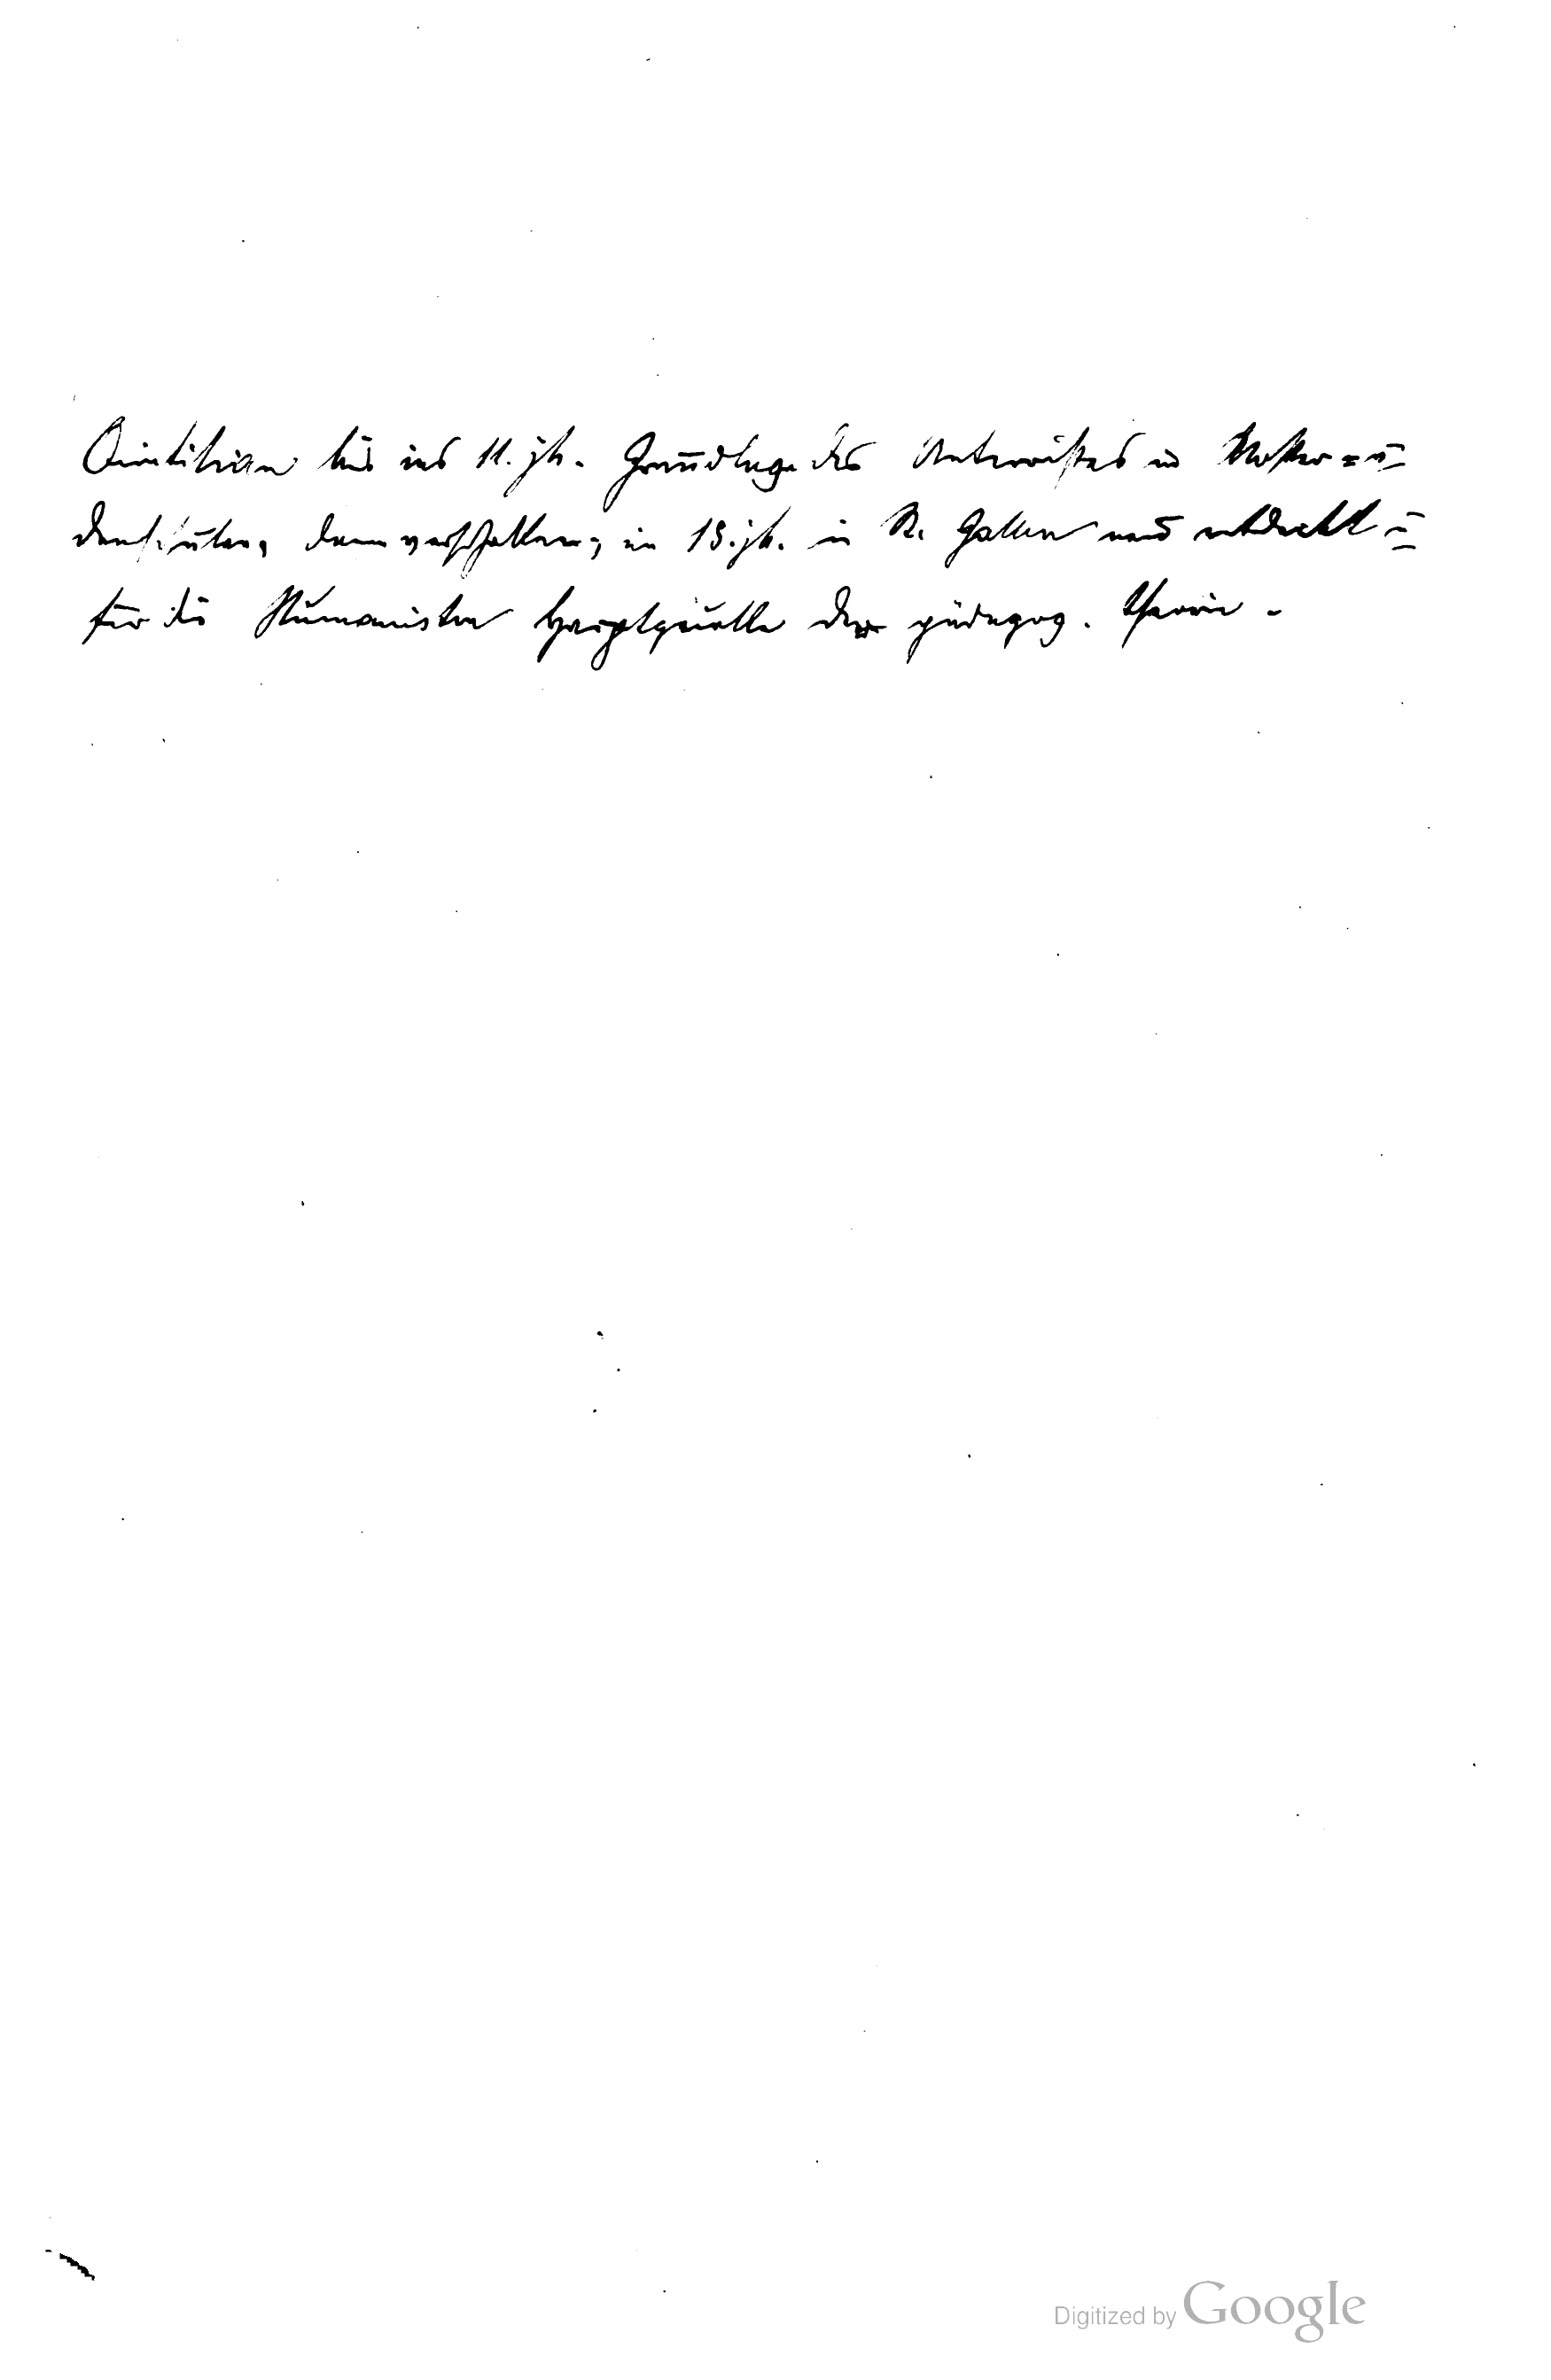 Quintilian bis ins 11. Jh. Grundlage des Unterrichtes in Kloster= u.
Domschulen, dann verschollen; im 15. Jh. in St. Gallen neu entdeckt u.
für die Humanisten Hauptquelle der pädagog. Theorie.
Digitized by Google